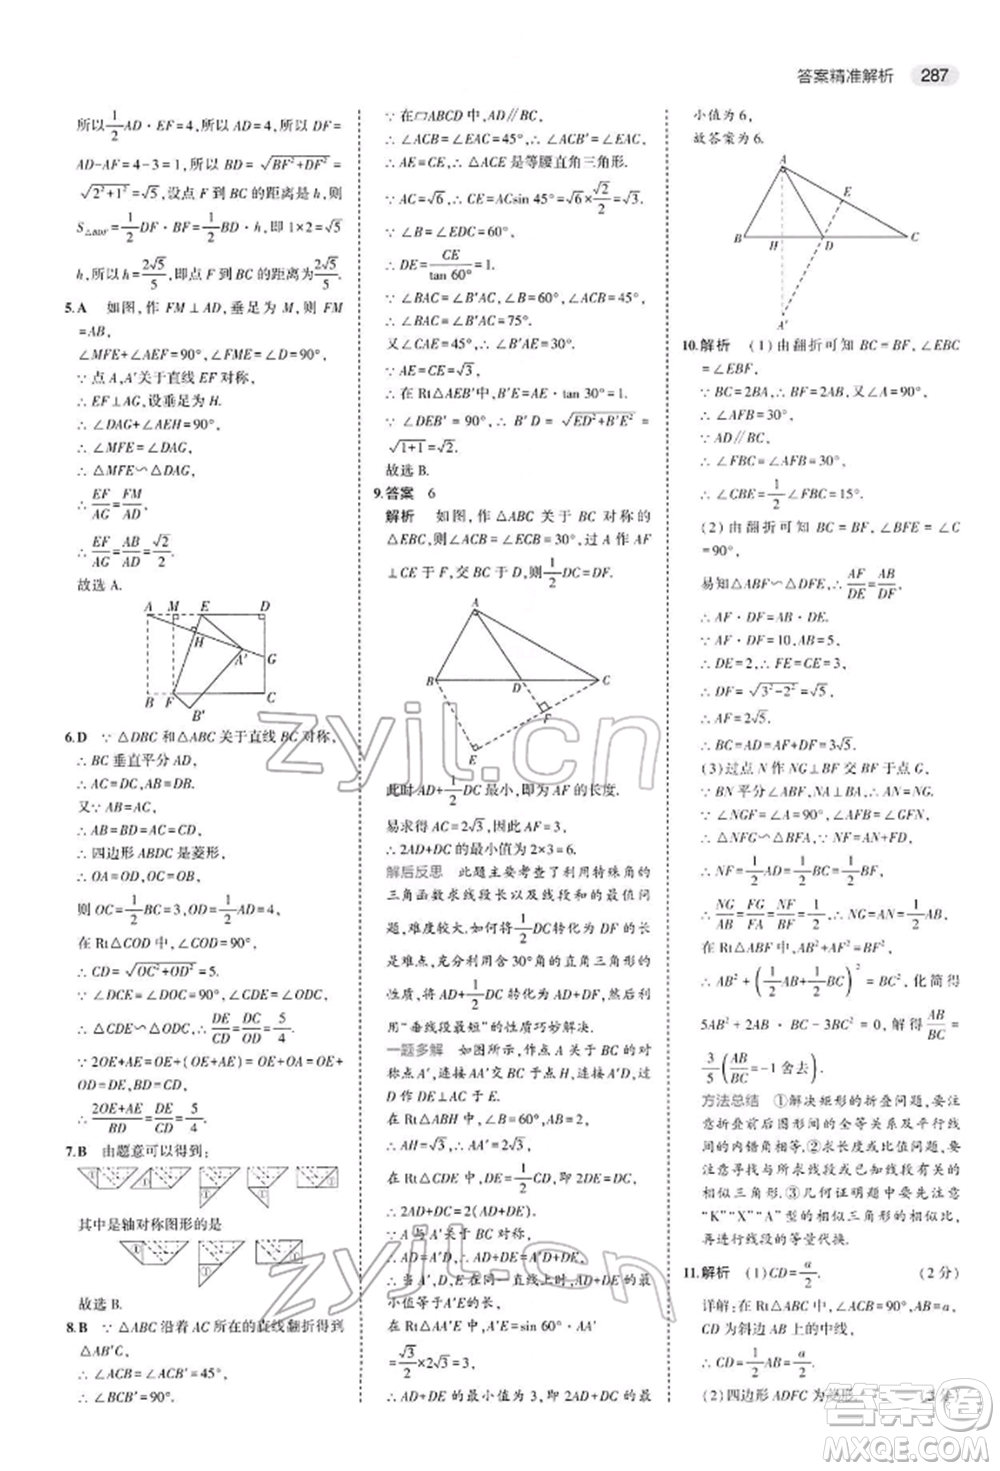 答案精准解析 287
所以1/2AD·EF=4,所以DF=
AD-AF=4-3=1,所以BD=√(BF²+DF²)=
√(2²+1²)=√5,设点F到BC的距离是h,则
S△BDF=1/2DF·BF=1/2BD·h,即1×2=√5
h,所以h=2√5/5,即点F到BC的距离为2√5/5.
5.A 如图,作FM⊥AD,垂足为M,则FM
=AB,
∠MFE+∠MEF=90°,∠FME=∠D=90°.
∵点A,A'关于直线EF对称,
∴EF⊥AG,设垂足为H.
∴∠DAG+∠AEH=90°,
∴∠MFE=∠DAG,
∴△MFE∽△DAG,
∴EF/AG=FM/AD,
∴EF/AG=AB/AD=√2/2.
故选A.
A M E D
H A' G
B F C
B'
6.D ∵△DBC和△ABC关于直线BC对称,
∴BC垂直平分AD,
∴AC=CD,AB=BD.
又∵AB=AC,
∴AB=BD=CD=AC,
∴四边形ABDC是菱形,
∴OA=OD,OC=OB,
则OC=1/2BC=3,OD=1/2AD=4,
在Rt△COD中,∠COD=90°,
∴CD=√(OC²+OD²)=5.
∵∠DCE=∠DOC=90°,
∴△CDE∽△ODC,∴DE/CD=DC/OD=5/4.
∵2OE+AE=OE+(OE+AE)=OE+
OD=DE,
∴(2OE+AE)/BD=DE/CD=5/4
7.B 由题意可以得到:
① ① ① ① ①
其中是轴对称图形的是
① ① ①
故选B.
8.B ∵△ABC沿着AC所在的直线翻折得到
△AB'C,
∴∠ACB=∠ACB'=45°,
∴∠BCB'=90°.
∵在▱ABCD中,AD∥BC,
∴∠ACB=∠EAC=45°,∴∠ACE=∠EAC,
∴AE=CE,∴△ACE是等腰直角三角形.
∵AC=√6,∴CE=ACsin 45°=√6×√2/2=√3.
∵∠B=∠ADC=60°,
∴DE=CE/tan 60°=1.
∵∠BAC=∠B'AC,∠B=60°,
∴∠BAC=∠B'AC=75°.
又∠CAE=45°,
∴∠B'AE=30°.
∵AE=CE=√3,
∴在Rt△AEB'中,B'E=AE·tan 30°=1.
∵∠DEB'=90°,∴B'D=√(ED²+B'E²)=
√(1+1)=√2.
故选B.
9.答案 6
解析 如图,作△ABC关于BC对称的
△EBC,则∠BCE=∠BCA=30°,过A作AF
⊥CE于F,交BC于D,则1/2DC=DF.
A
B D C
F
E
此时AD+1/2DC最小,即为AF的长度.
易求得AC=2√3,因此AF=3,
∴2AD+DC的最小值为2×3=6.
解后反思 此题主要考查了利用特殊角的
三角函数求线段长以及线段和的最值问
题,难度较大,如何将1/2DC转化为DF的长
是难点,充分利用30°角的直角三角形的
性质,将AD+1/2DC转化为AD+DF,再利
用“垂线段最短”的性质巧妙解决.
一题多解 如图所示,作点A关于BC的对
称点A',连接AA',连接A'D并延长,过
D作DE⊥AC于E.
在Rt△ABH中,∵∠B=60°,AB=2,
∴AH=√3,∴AA'=2√3.
在Rt△DEC中,DE=1/2CD,
∴2AD+DC=2(AD+DE).
∵A与A'关于BC对称,
∴AD=A'D,∴AD+DE=A'D+DE,
∴当A',D,E在同一直线上时,AD+DE的最
小值等于A'E的长,
在Rt△AA'E中:A'E=sin 60°·AA'=
√3/2×2√3=3,
∴AD+DE的最小值为3,即2AD+CD的最
小值为6,
故答案为6.
A
E
B H D C
A'
10.解析 (1)由翻折可知BC=BF,∠EBC
=∠EBF.
∵BC=2BA,∴BF=2AB,又∠A=90°,
∴∠AFB=30°.
∵AD∥BC,
∴∠FBC=∠AFB=30°,
∴∠CBE=1/2∠FBC=15°.
(2)由翻折可知CE=EF,∠BFE=∠C
=90°,
易知△ABF∽△DFE,∴AF/DE=AB/DF,
∴AF·DF=AB·DE.
∵AF·DF=10,AB=5,
∴DE=2,∴EF=CE=3,
∴DF=√(3²-2²)=√5,
∴AF=2√5,
∴BC=AD=3√5.
(3)过点N作NG⊥BF交BF于点G,
∵BN平分∠ABF,NA⊥BA,∴NG=AN.
∵∠NGF=∠A=90°,∠NFG=∠BFA,
∴△NFG∽△BFA,∵NF=AN+FD,
∴NF=1/2AD=1/2BC=1/2BF,
∴NG/AB=FG/FA=NF/BF=1/2,∴NG=1/2AB,
在Rt△ABF中,AB²+AF²=BF²,
∴AB²+(1/2AB+1/2BC)²=BC²,化简得
5AB²+2AB·BC-3BC²=0,解得AB/BC=
3/5(AB/BC=-1舍去).
方法总结 ①解决矩形的折叠问题,要注
意折叠前后图形间的全等关系及平行线
间的内错角相等,②求长度或比值问题,
要注意寻找与线段的长或比值有关的
相似三角形.③几何证明题中要先注意
“K”“X”“A”型的相似或相似比,
再进行线段间的等量代换.
11.解析 (1)CD=a/2. (2分)
详解:在Rt△ABC中,∠ACB=90°,AB=a,
CD为斜边AB上的中线,
∴CD=1/2AB=a/2.
(2)四边形ADFC为菱形. (3分)
zyjl.cn
zyjl.cn
答案圈
MXQE.COM